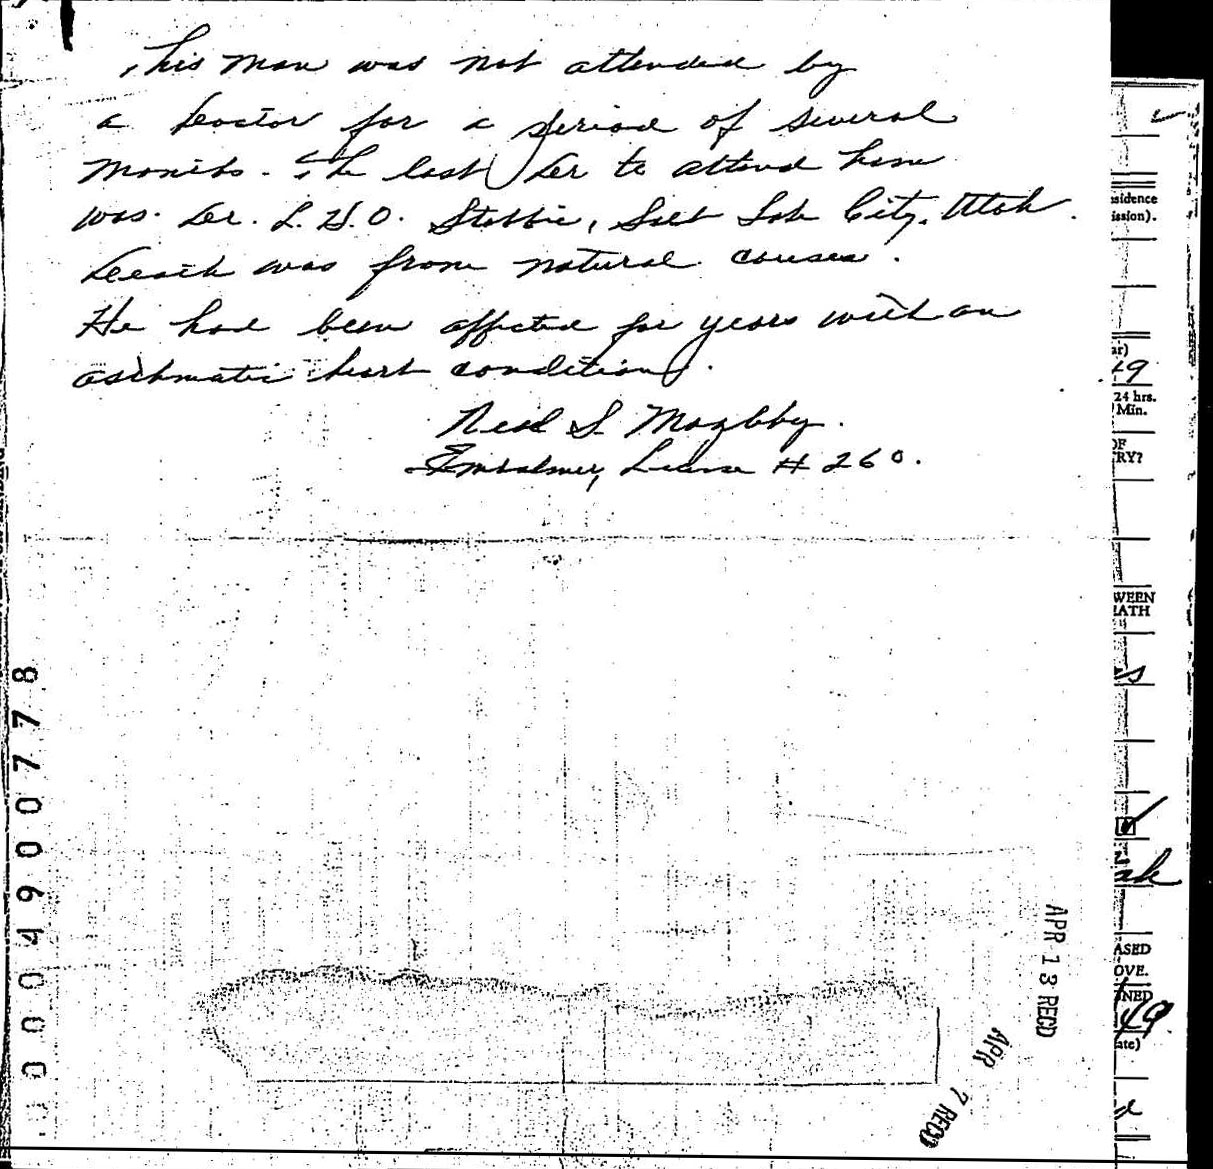 This man was not attended by
a Doctor for a period of several
months. The last Dr to attend him
was Dr. L. H. O. Stobbie, Salt Lake City, Utah.
Death was from natural causes.
He had been affected for years with an
asthmatic heart condition.
Neal S.
Embalmer, License # 260.
000490778
APR 13 RECD
APR 7 RECD
sidence
ission).
ar)
49
24 hrs.
Min.
OF
RY?
WEEN
EATH
ASED
OVE.
NED
49
ate)